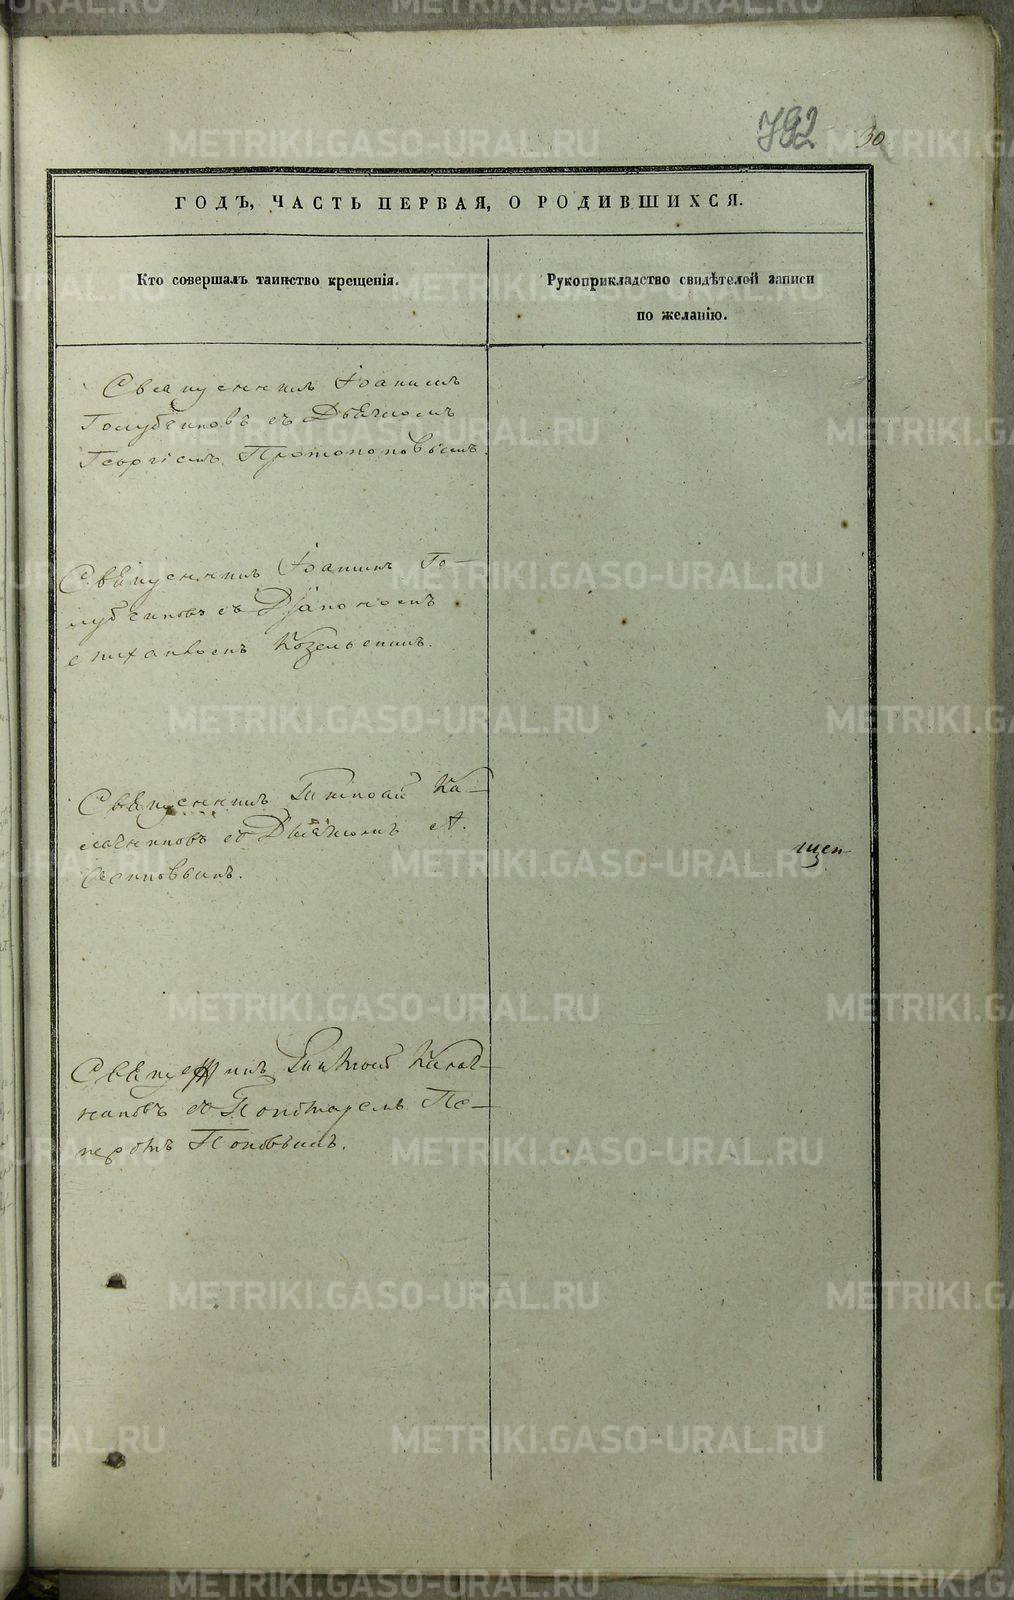 792 30
ГОДЪ, ЧАСТЬ ПЕРВАЯ, О РОДИВШИХСЯ.
Кто совершалъ таинство крещенія.
Рукоприкладство свидѣтелей записи
по желанію.
Священникъ Іоаннъ
Голубчиковъ съ Дьячкомъ
Георгіемъ Протопоповымъ.
Священникъ Іоаннъ Го-
лубчиковъ съ Діакономъ
Козельскимъ.
Священникъ Ка-
съ Дьячкомъ А.
Священникъ
съ Пономаремъ Пе-
Поповымъ.
щен
METRIKI.GASO-URAL.RU